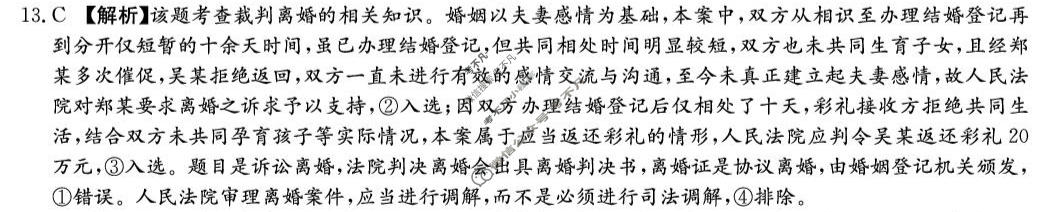 13. C 【解析】该题考查裁判离婚的相关知识。婚姻以夫妻感情为基础,本案中,双方从相识至办理结婚登记再
到分开仅短暂的十余天时间,虽已办理结婚登记,但共同相处时间明显较短,双方也未共同生育子女,且经郑
某多次催促,吴某拒绝返回,双方一直未进行有效的感情交流与沟通,至今未真正建立起夫妻感情,故人民法
院对郑某要求离婚之诉求予以支持,②入选;因双方办理结婚登记后仅相处了十天,彩礼接收方拒绝共同生
活,结合双方未共同孕育孩子等实际情况,本案属于应当返还彩礼的情形,人民法院应判令吴某返还彩礼 20
万元,③入选。题目是诉讼离婚,法院判决离婚会出具离婚判决书,离婚证是协议离婚,由婚姻登记机关颁发,
①错误。人民法院审理离婚案件,应当进行调解,而不是必须进行司法调解,④排除。